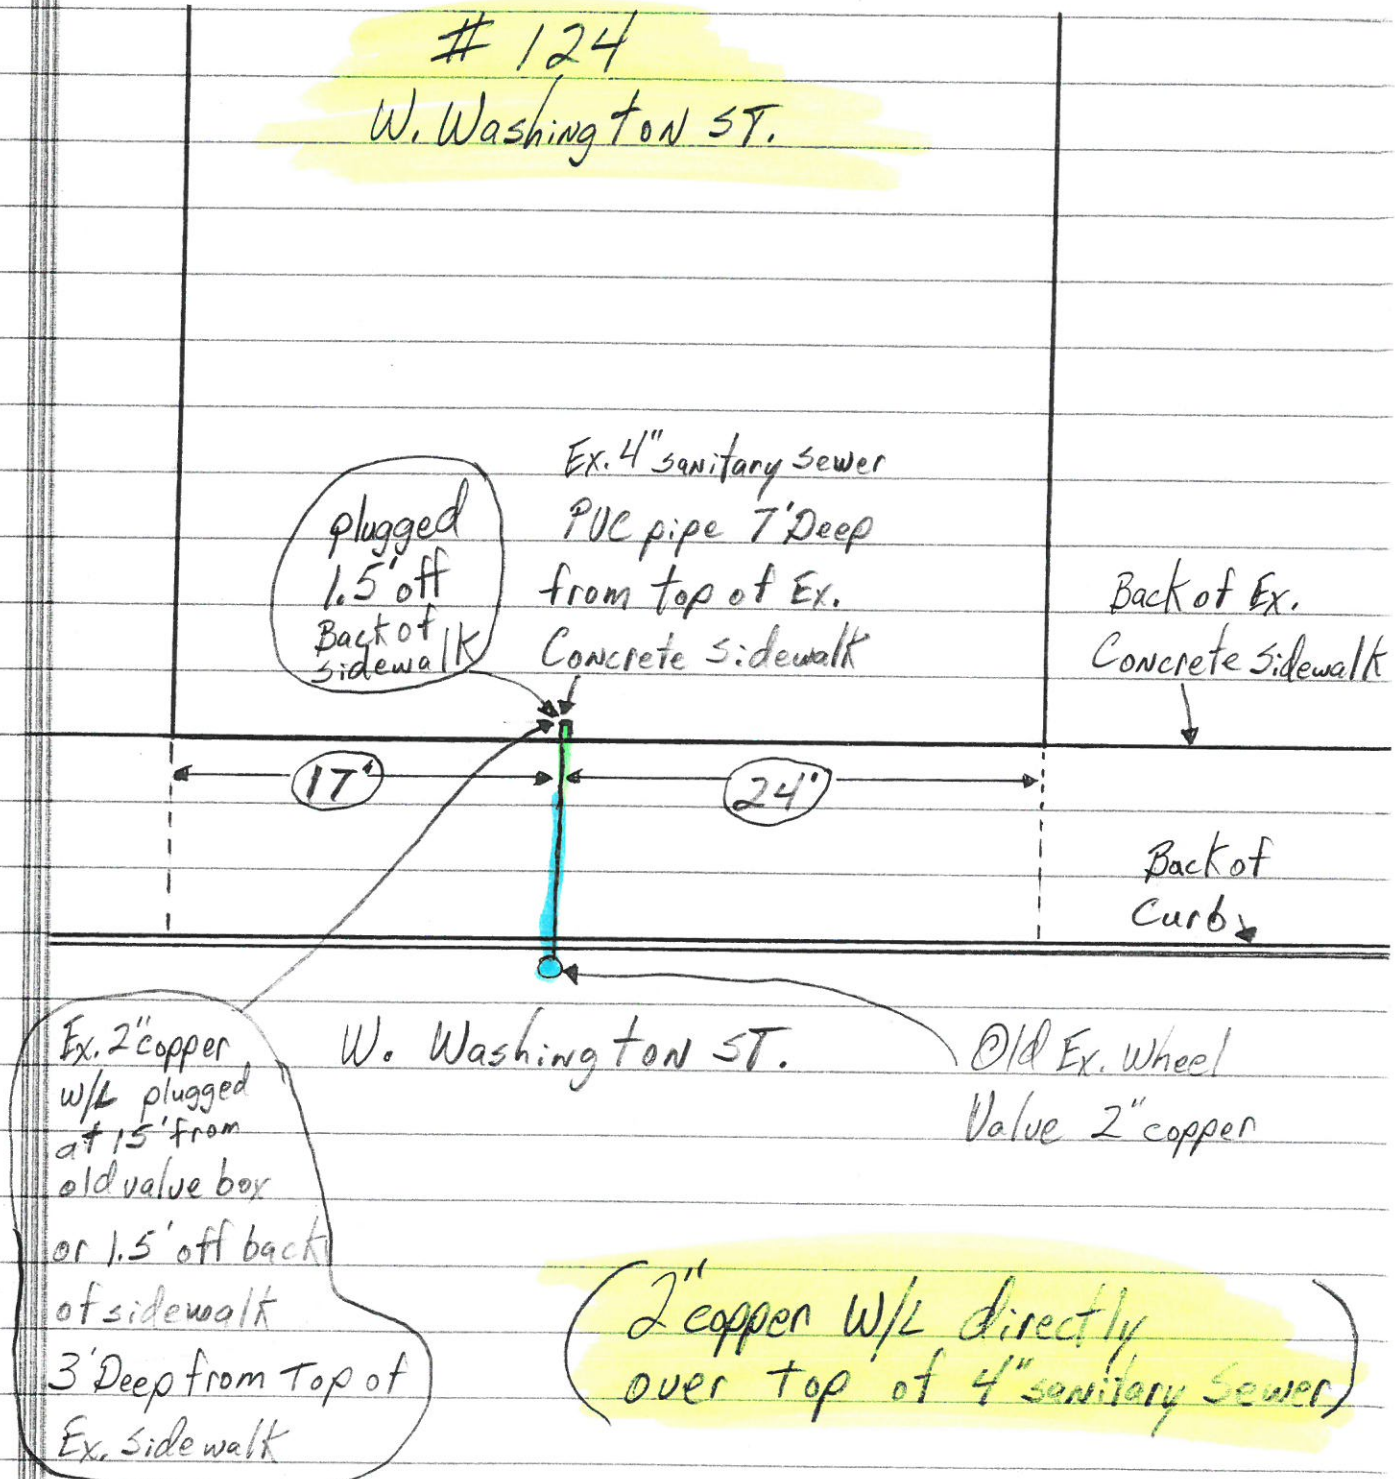 # 124
W. Washington ST.
Ex. 4" sanitary sewer
PVC pipe 7' Deep
from top of Ex.
Concrete sidewalk
plugged
1.5' off
Back of
sidewalk
Back of Ex.
Concrete sidewalk
17'
24'
Back of
Curb
W. Washington ST.
Old Ex. Wheel
Value 2" copper
Ex. 2" copper
W/L plugged
at 15' from
old value box
or 1.5' off back
of sidewalk
3' Deep from Top of
Ex. sidewalk
(2" copper W/L directly
over top of 4" sanitary sewer)